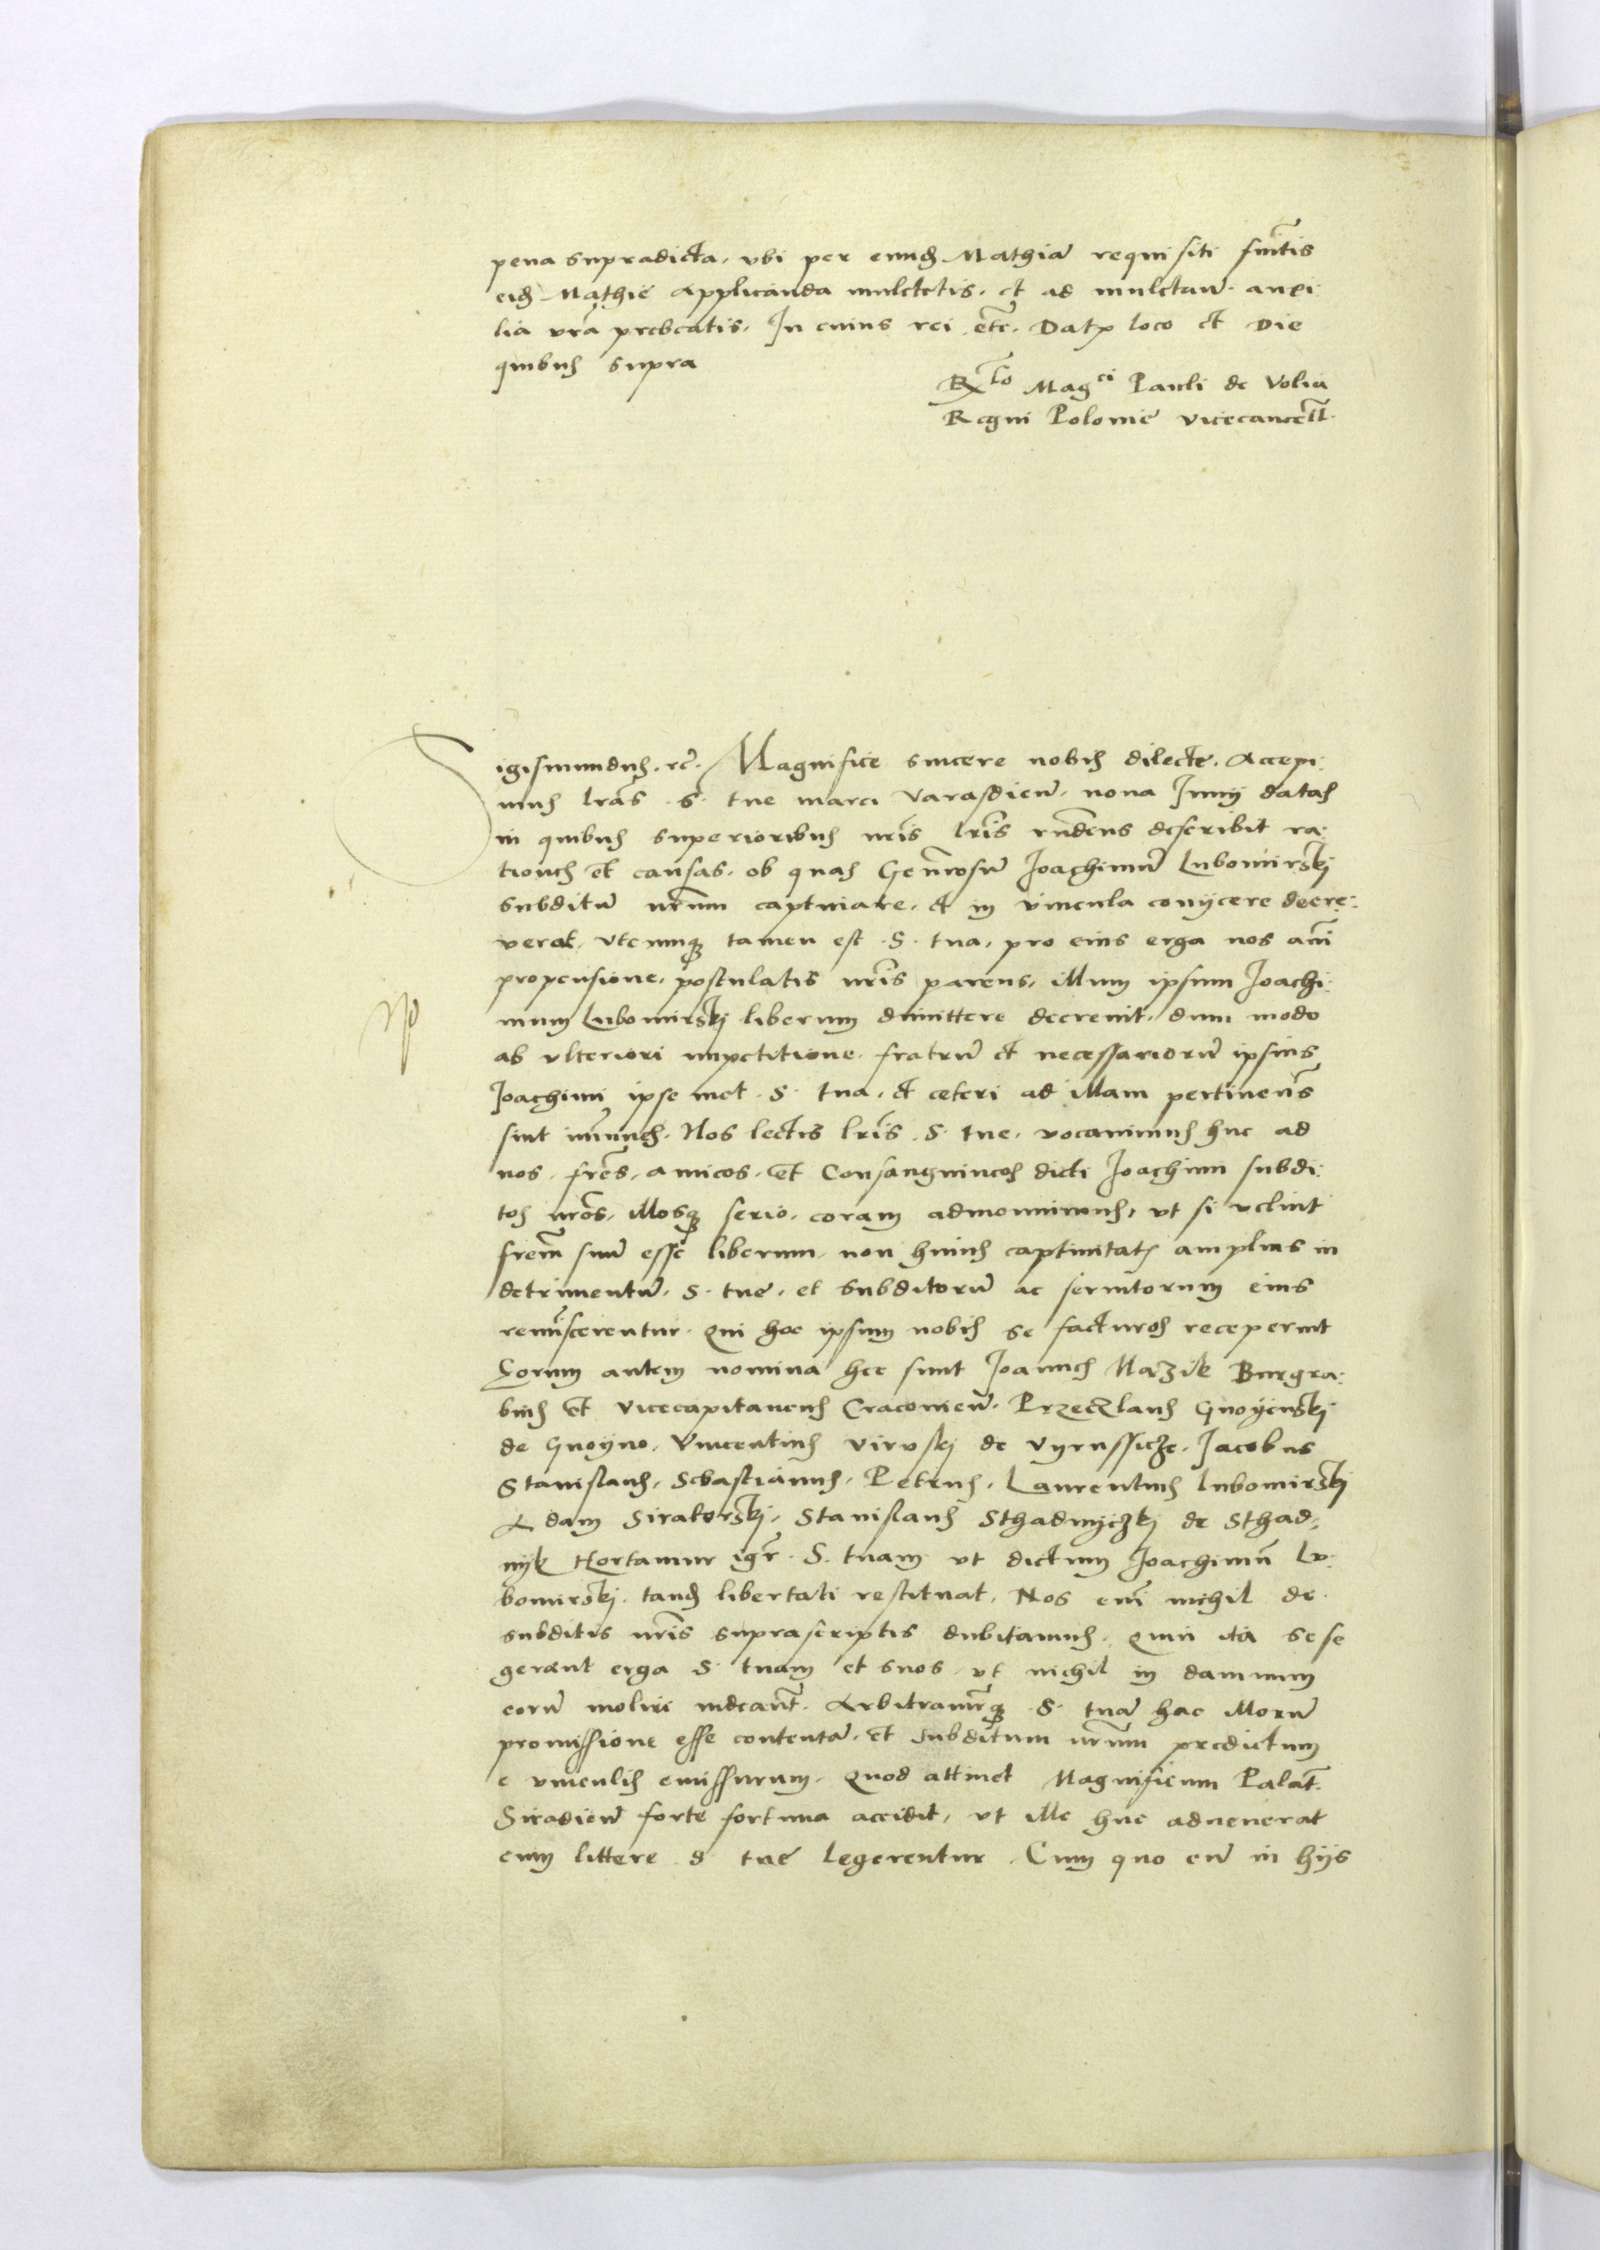 pena supradicta, vbi per eund Mathiā requisiti fueritis
eid Mathie Applicanda mulctetis, et ad mulctam auxi:
lia vrā prebeatis, In cuius rei etc. Datp loco et Die
quibus supra
Rlo Magci Pauli de Volia
Regni Polonie vicecancell.
Sigismundus, rc. Magnifice sincere nobis dilecte, Accepi:
mus lrās S. tue marci Varasdien, nona Junij datas
in quibus superioribus nris lris rndens describit ra:
tiones et causas, ob quas Genrosū Joachimū Lubomirskj
subditū nrum captiuare, et in vincula conijcere decre:
verat, vtcumq tamen est S. tua, pro eius erga nos aīi
propensione, postulatis nris parens, illum ipsum Joachi:
mum Lubomirskj liberum dimittere decreuit, dum modo
ab vlteriori impetitione, fratrū et necessariorū ipsius
Joachimi ipse met S. tua, et ceteri ad illam pertinens
sint imunes. Nos lectis lris S. tue, vocauimus huc ad
nos, frēs, amicos, et Consanguineos dicti Joachimi subdi:
tos nros, illosq serio, coram admonuimus, vt si uelint
frem suū esse liberum, non huius captiuitatis amplius in
detrimentū, S. tue, et subditorū ac seruitorum eius
reminiscerentur. Qui hoc ipsum nobis se facturos receperunt
Eorum autem nomina hec sunt Joannes Nazik Burgra:
bius et vicecapitaneus Cracouien, Przeczlaus Gnoyenskj
de Gnoyno, Vincentius Virvskj de Vyrussicze, Jacobus
Stanislaus, Sebastianus, Petrus, Laurentius Lubomirskj
Adam Sirakorskj, Stanislaus Sthadnyczkj de Sthad:
nyk Hortamur igr S. tuam vt dictum Joachimū Lu:
bomirskj, tand libertati restituat, Nos enī nichil de
subditis nris suprascriptis dubitamus, Quin ita sese
gerant erga S. tuam et suos, vt nichil in damnum
eorū moliri uideant. Arbitramurq S. tuā hac illorū
promissione esse contentā, et subditum nrum predictum
e vinculis emissurum, Quod attinet Magnificum Palat.
Siradien forte fortuna accidit, vt ille huc aduenerat
cum littere S. tue legerentur, Cum quo cū in hijs